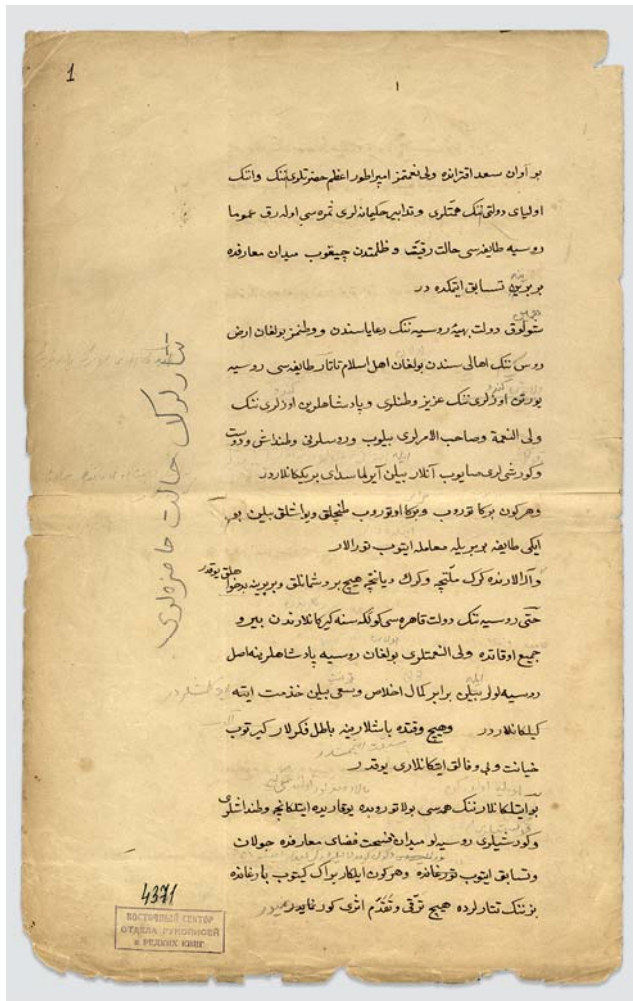 1
١
بو آوان سعد اقترانده ولی نعمتمز امپراطور اعظم حضرتلری ننك واننك
اولیای دولتی ننك همتلری و تدابیر حکیمانه لری ثمره سی اوله رق عموما
روسیه طایفه سی حالت رقیت و ظلمتدن چیقوب میدان معارفده
بربرین تسابق ایتمکده در
شولوق دولت بهیه روسیه ننك رعایاسندن و وطنمز بولغان ارض
روس ننك اهالی سندن بولغان اهل اسلام تاتار طایفه سی روسیه
یورتن اوزلری ننك عزیز وطنلری و پادشاهلرین اوزلری ننك
ولی النعمة وصاحب الامرلری بیلوب و روسلرنی وطنداش و دوست
وکورشی لری صایوب آنلار بیلن آیرلماسدای بریککانلاردر
وهرکون برکا توروب و برکا اوتوروب طنچلق ویواشلق بیلن بو
ایکی طایفه بربریله معامله ایتوب تورالار
وآرالارنده کرك ملتچه وکرك دیانتچه هیچ بر دشمانلق وبربرینه بدخواهلق یوقدر
حتی روسیه ننك دولت قاهره سی کولکه سنه کیرکانلارندن بیرو
جمیع اوقاتده ولی النعمتلری بولغان روسیه پادشاهلرینه اصل
روسیه لولر بیلن برابر کمال اخلاص وسعی بیلن خذمت ایته
کیلکانلاردر وهیچ وقتده باشلارینه باطل فکرلار کیرتوب
خیانت و بی وفالق ایتکانلاری یوقدر
بو ایتلکانلارننك همه سی بولا توروبده یوقاریده ایتلکانچه وطنداشلری
وکورشیلری روسیه لو میدان فسحت فضای معارفده جولات
وتسابق ایتوب تورغانده وهرکون ایلکاری راك کیتوب بارغانده
بزننك تتارلرده هیچ ترقی وتقدم اثری کورنمایدر
تتارلرنك حالت حاضره لری
4371
ВОСТОЧНЫЙ СЕКТОР
ОТДЕЛА РУКОПИСЕЙ
и РЕДКИХ КНИГ